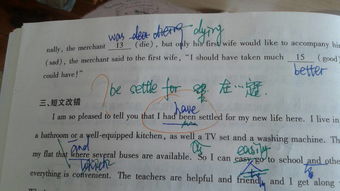 was dying
nally, the merchant 13 (die), but only his first wife would like to accompany hi
(sad), the merchant said to the first wife, "I should have taken much 15 (good
better
could have!"
be settle for
三、短文改错
have
I am so pleased to tell you that I had been settled for my new life here. I live in
a bathroom or a well-equipped kitchen, as well a TV set and a washing machine. Th
and as easily
my flat that where several buses are available. So I can easy go to school and othe
everything is convenient. The teachers are helpful and friend, and I get along